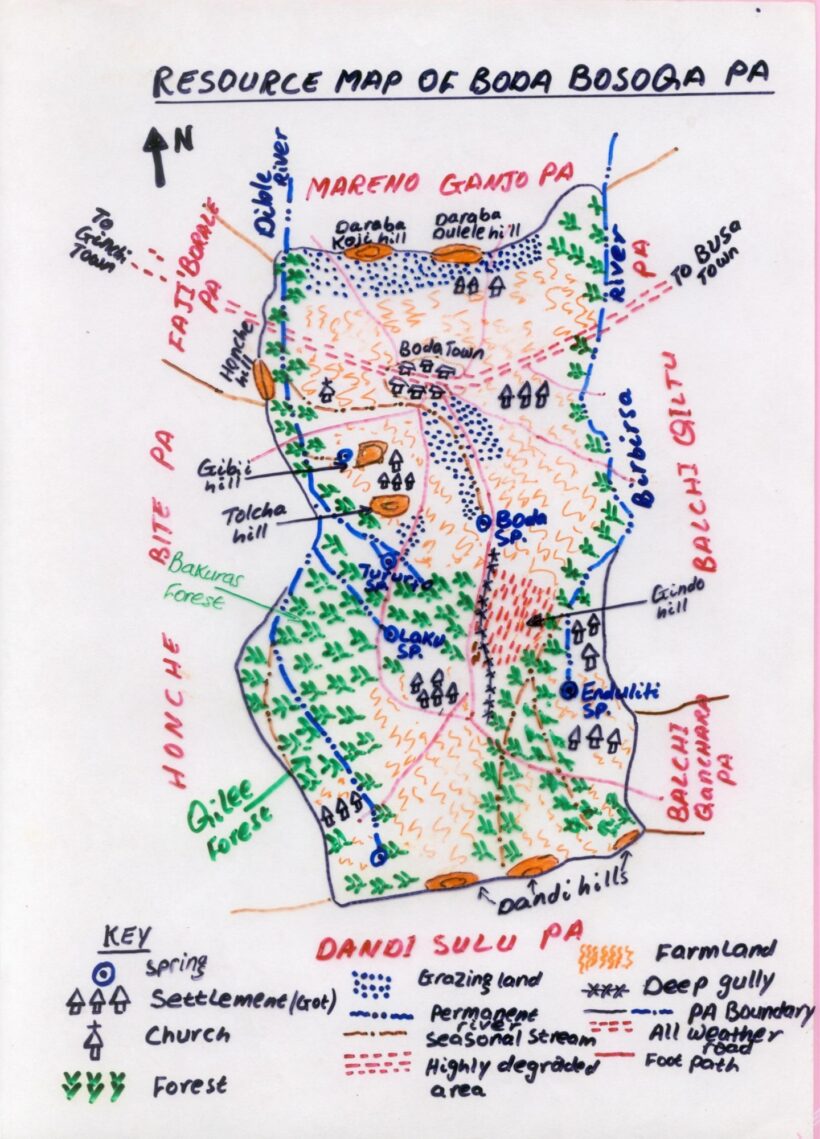 RESOURCE MAP OF BODA BOSOQA PA
N
Dible
River
MARENO GANJO PA
To
Ginchi
Town
FAJI BORALE
PA
Daraba
Koji hill
Daraba
Dulele hill
River
PA
To BUSA
Town
Honche
hill
Boda Town
BITE PA
HONCHE
Gibji
hill
Tolcha
hill
Boda
SP.
Birbirsa
BALCHI GILTU
Bakuras
Forest
SP.
Laku
SP.
Gindo
hill
Enduliti
SP.
BALCHI
Qanchara
PA
Gilee
Forest
Dandi hills
DANDI SULU PA
KEY
Spring
Settlement/(Got)
Church
Forest
Grazing land
Permanent
river
Seasonal Stream
Highly degraded
area
Farmland
Deep gully
PA Boundary
All weather
road
Foot path